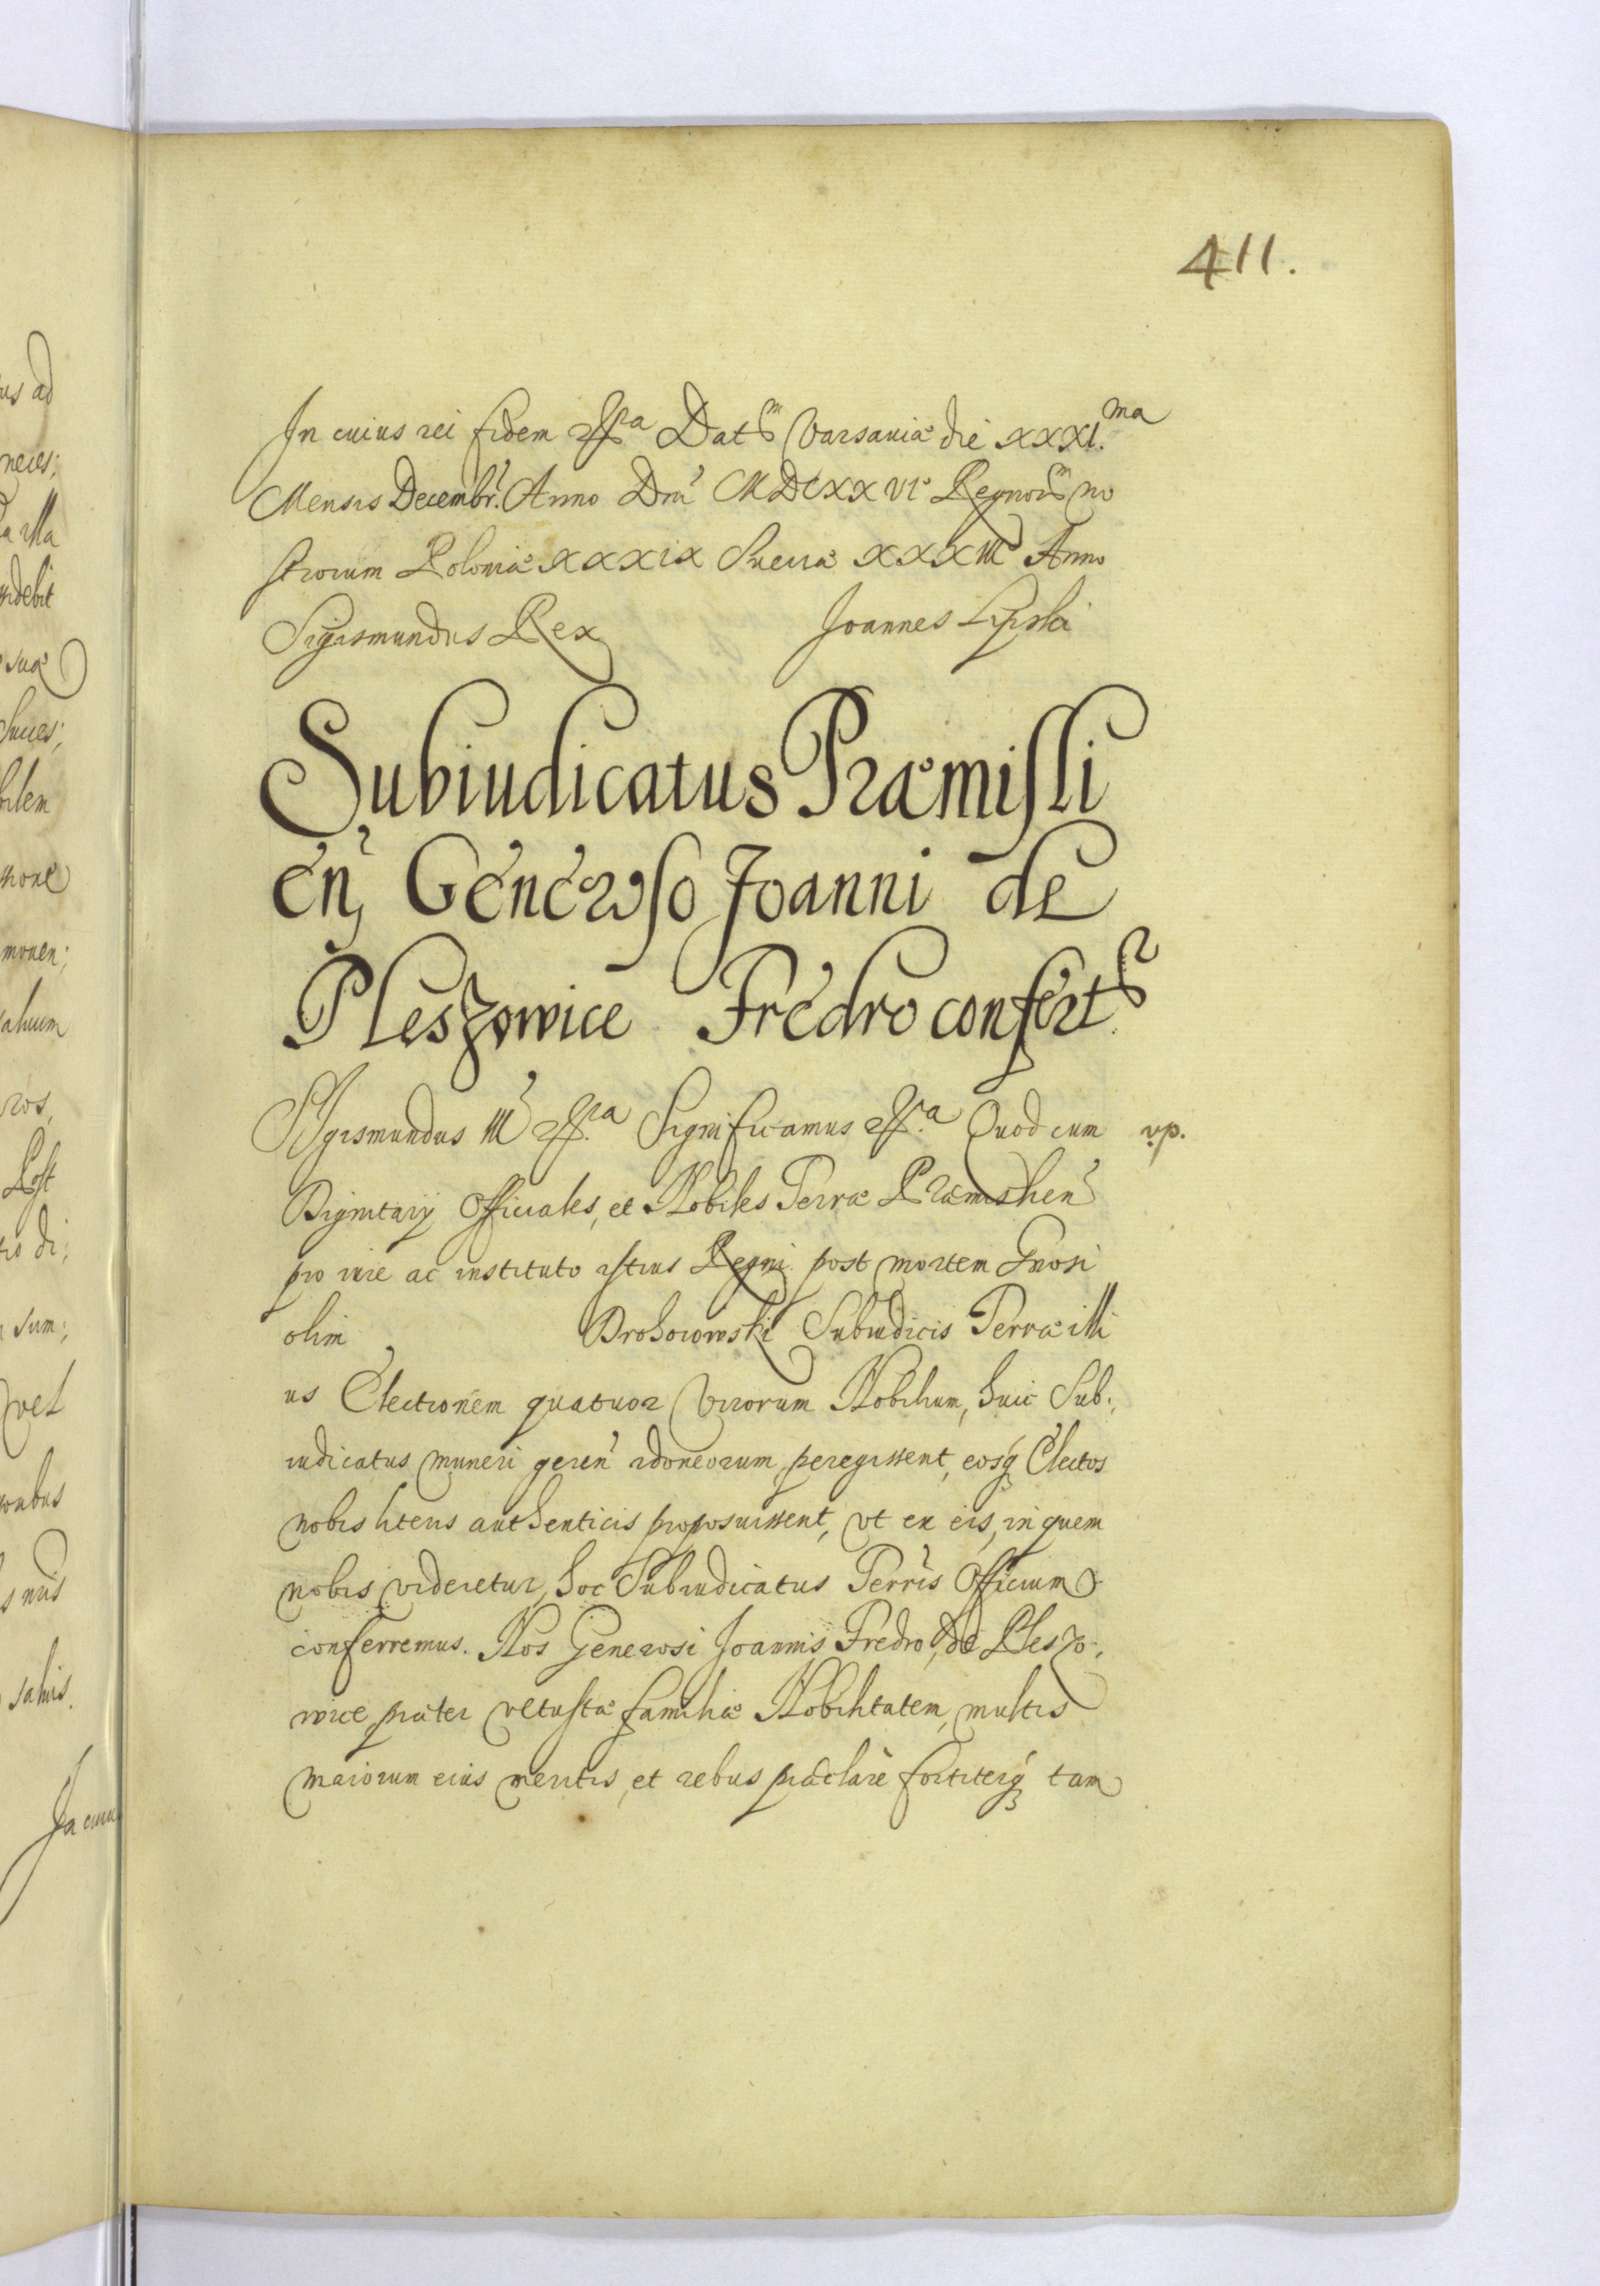 411.
In cuius rei fidem etc.ª Dat͠m Varsaviæ die XXXI.ma
Mensis Decembr. Anno Dni MDCXXVIº Regnor͠m no
strorum Poloniæ XXXIX Sueciæ XXXIII Anno
Sigismundus Rex Joannes Lipski
Subiudicatus Præmisli
en, Generoso Joanni de
Pleszowice Fredro confert͠r
Sigismundus III etc.ª Significamus etc.ª Quod cum
vp.
Dignitarij Officiales, et Nobiles Terræ Præmislien
pro iure ac instituto istius Regni post mortem Gnosi
olim Drohoiowski Subiudicis Terræ illi
us Electionem quatuor Virorum Nobilium, huic Sub:
iudicatus muneri geren idoneorum peregissent, eosq Electos
nobis literis authenticis proposuissent, vt ex eis, in quem
nobis videretur, hoc Subiudicatus Terris Officium
conferremus. Nos Generosi Joannis Fredro, de Pleszo:
wice præter vetustæ familiæ Nobilitatem, multis
maiorum eius meritis, et rebus præclarè fortiterq tam
us ad
neces;
illa
videbit
suæ
Succes;
bilem
mouen;
ros,
Post
di;
sum;
vel
salvis.
In cuius